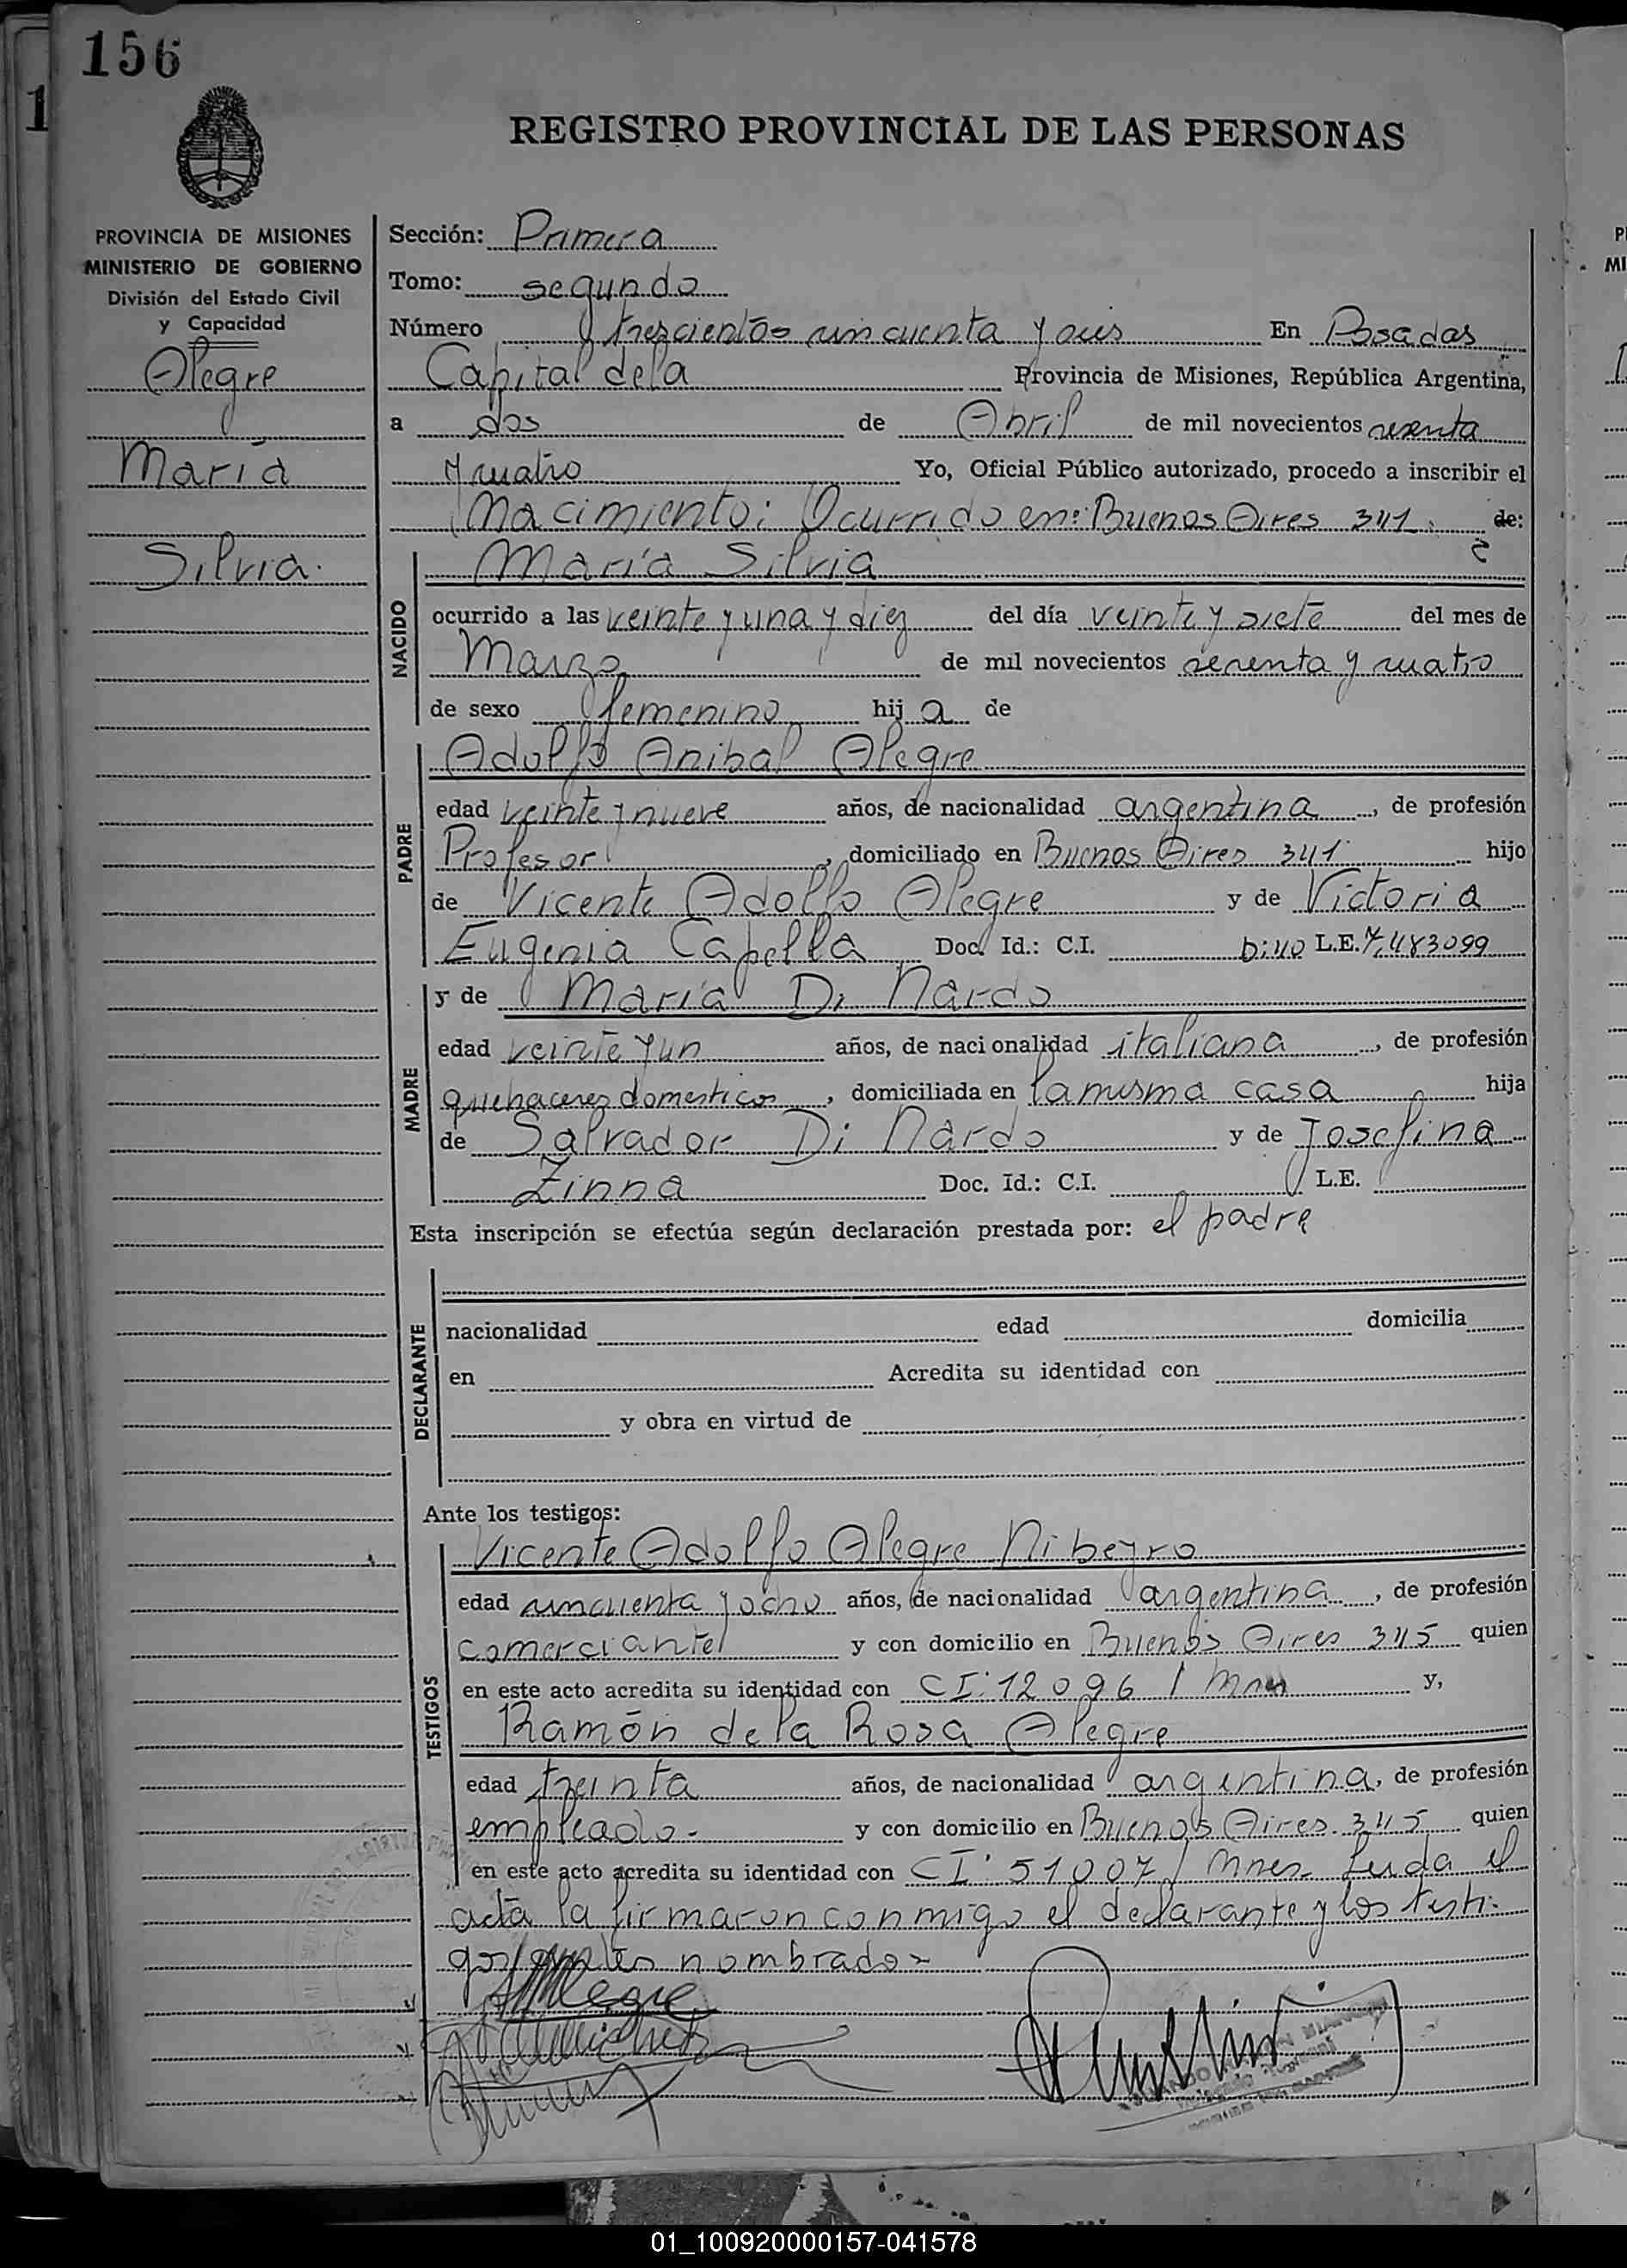 156
REGISTRO PROVINCIAL DE LAS PERSONAS
PROVINCIA DE MISIONES
MINISTERIO DE GOBIERNO
División del Estado Civil
y Capacidad
Alegre
María
Silvia.
Sección: Primera
Tomo: segundo
Número trescientos cincuenta y seis En Posadas
Capital de la Provincia de Misiones, República Argentina,
a dos de Abril de mil novecientos sesenta
y cuatro Yo, Oficial Público autorizado, procedo a inscribir el
Nacimiento: Ocurrido en: Buenos Aires 341 de:
NACIDO
María Silvia
ocurrido a las veinte y una y diez del día veinte y siete del mes de
Marzo de mil novecientos sesenta y cuatro
de sexo femenino hija de
PADRE
Adolfo Anibal Alegre
edad veinte y nueve años, de nacionalidad argentina, de profesión
Profesor, domiciliado en Buenos Aires 341 hijo
de Vicente Adolfo Alegre y de Victoria
Eugenia Capella Doc. Id.: C.I. D:40 L.E. 7,483099
MADRE
y de María Di Nardo
edad veinte y un años, de nacionalidad italiana, de profesión
quehaceres domesticos, domiciliada en la misma casa hija
de Salvador Di Nardo y de Josefina
Zinna Doc. Id.: C.I. L.E.
Esta inscripción se efectúa según declaración prestada por: el padre
DECLARANTE
nacionalidad edad domicilia
en Acredita su identidad con
y obra en virtud de
Ante los testigos:
TESTIGOS
Vicente Adolfo Alegre Nibeyro
edad cincuenta y ocho años, de nacionalidad argentina, de profesión
comerciante y con domicilio en Buenos Aires 345 quien
en este acto acredita su identidad con CI: 12096 / Mnes y,
Ramón de la Rosa Alegre
edad treinta años, de nacionalidad argentina, de profesión
empleado.- y con domicilio en Buenos Aires. 345 quien
en este acto acredita su identidad con CI: 51007 / Mnes- Leida el
acta la firmaron conmigo el declarante y los testi-
gos nombrados
Alegre
01_100920000157-041578